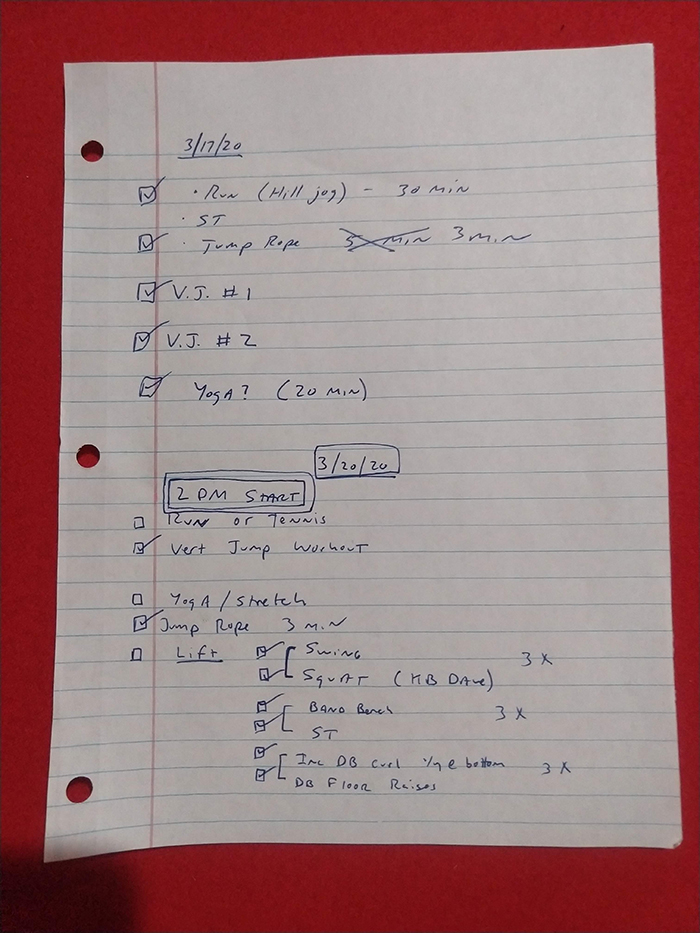 3/17/20
· Run (Hill jog) - 30 min
· ST
· Jump Rope 5 min 3 min
V.J. #1
V.J. #2
Yoga? (20 min)
3/20/20
2 PM START
Run or Tennis
Vert Jump Workout
Yoga / Stretch
Jump Rope 3 min
Lift
Swing 3x
Squat (KB Dave)
Band Bench 3x
ST
Inc DB curl @ bottom 3x
DB Floor Raises